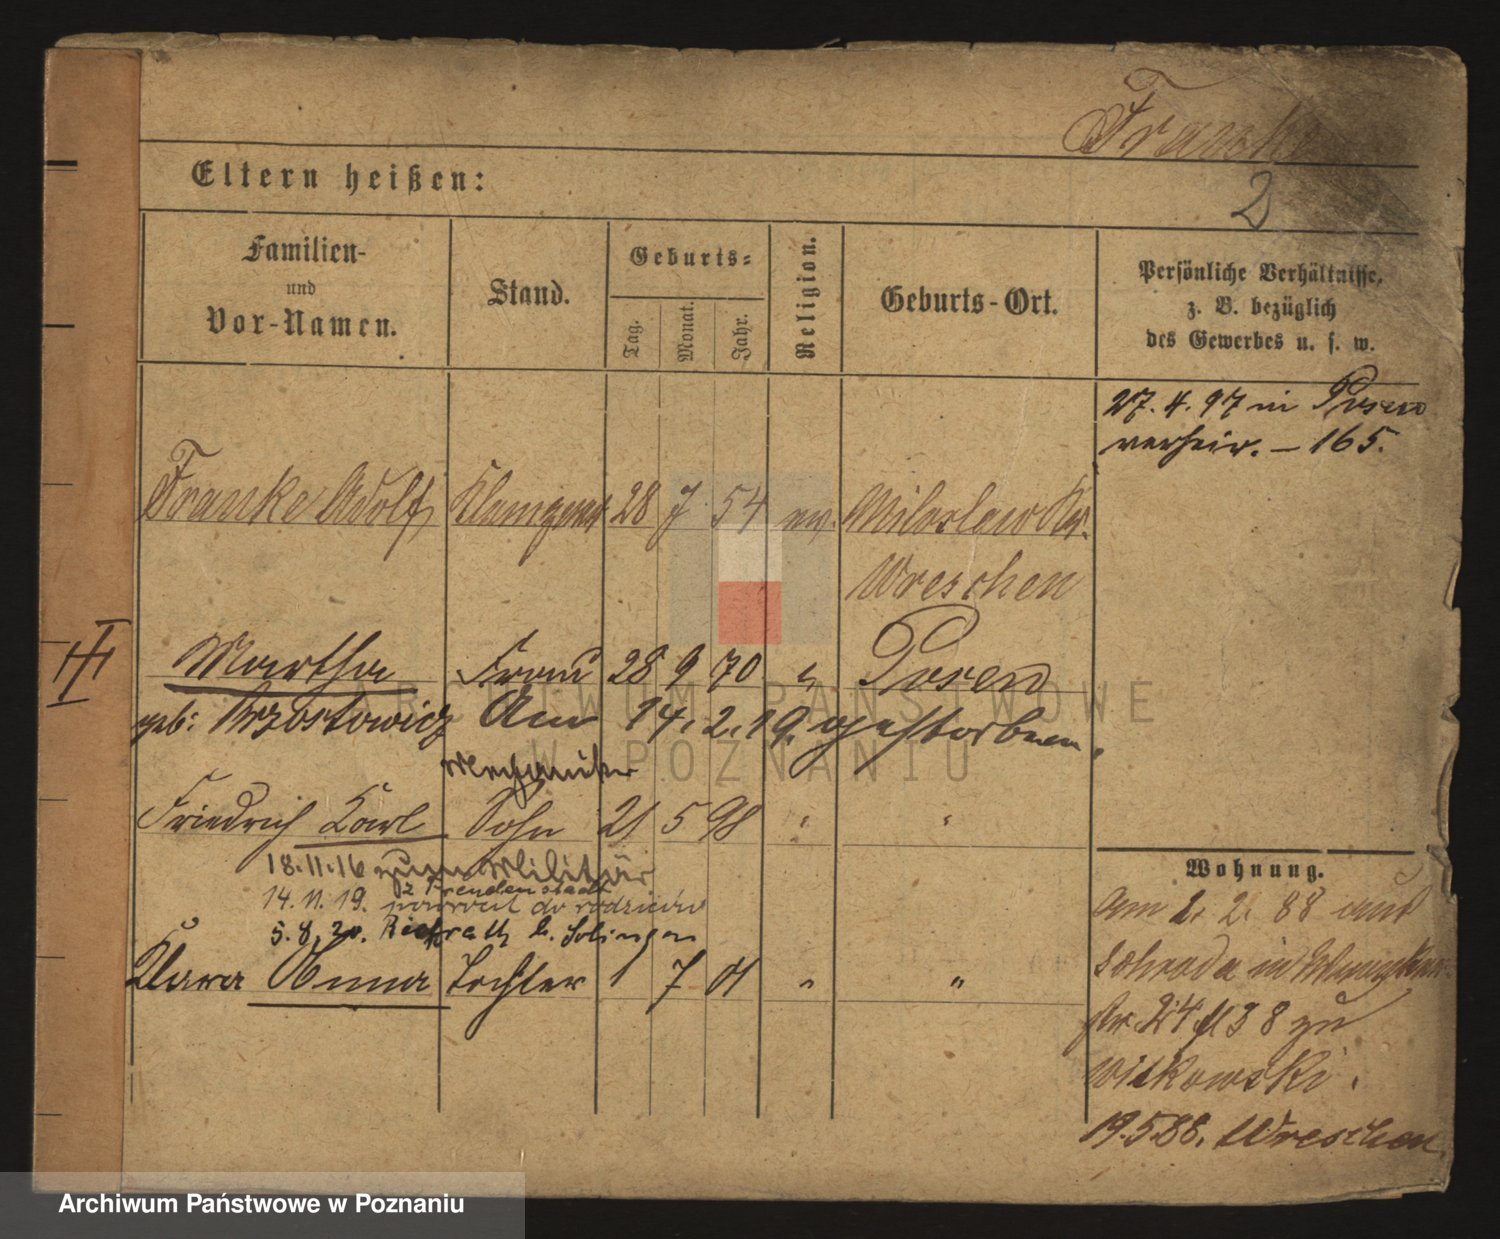 Franke
2
Eltern heißen:
Familien-
und
Vor-Namen.
Stand.
Geburts-
Tag.
Monat.
Jahr.
Religion.
Geburts-Ort.
Persönliche Verhältnisse,
z. B. bezüglich
des Gewerbes u. s. w.
27. 4. 97 in Posen
verheir. – 165.
Franke Adolf, 28 7 54 ev. Miloslaw Kr.
Wreschen
Martha Frau 28 9 70 " Posen
geb: Brzostowicz Am 14. 2. 19. gestorben.
Mechaniker
Friedrich Karl Sohn 21 5 98 " "
18.11.16 zum Militär
z Freudenstadt
14. 11. 19. powrócił do rodziców
5. 8. 20. b. Solingen
Klara Anna Tochter 1 7 01 " "
Wohnung.
Am 2. 2. 88 aus
Schroda in
24 38 zu
Witkowski.
19.5.88. Wreschen
ARCHIWUM PAŃSTWOWE
W POZNANIU
Archiwum Państwowe w Poznaniu